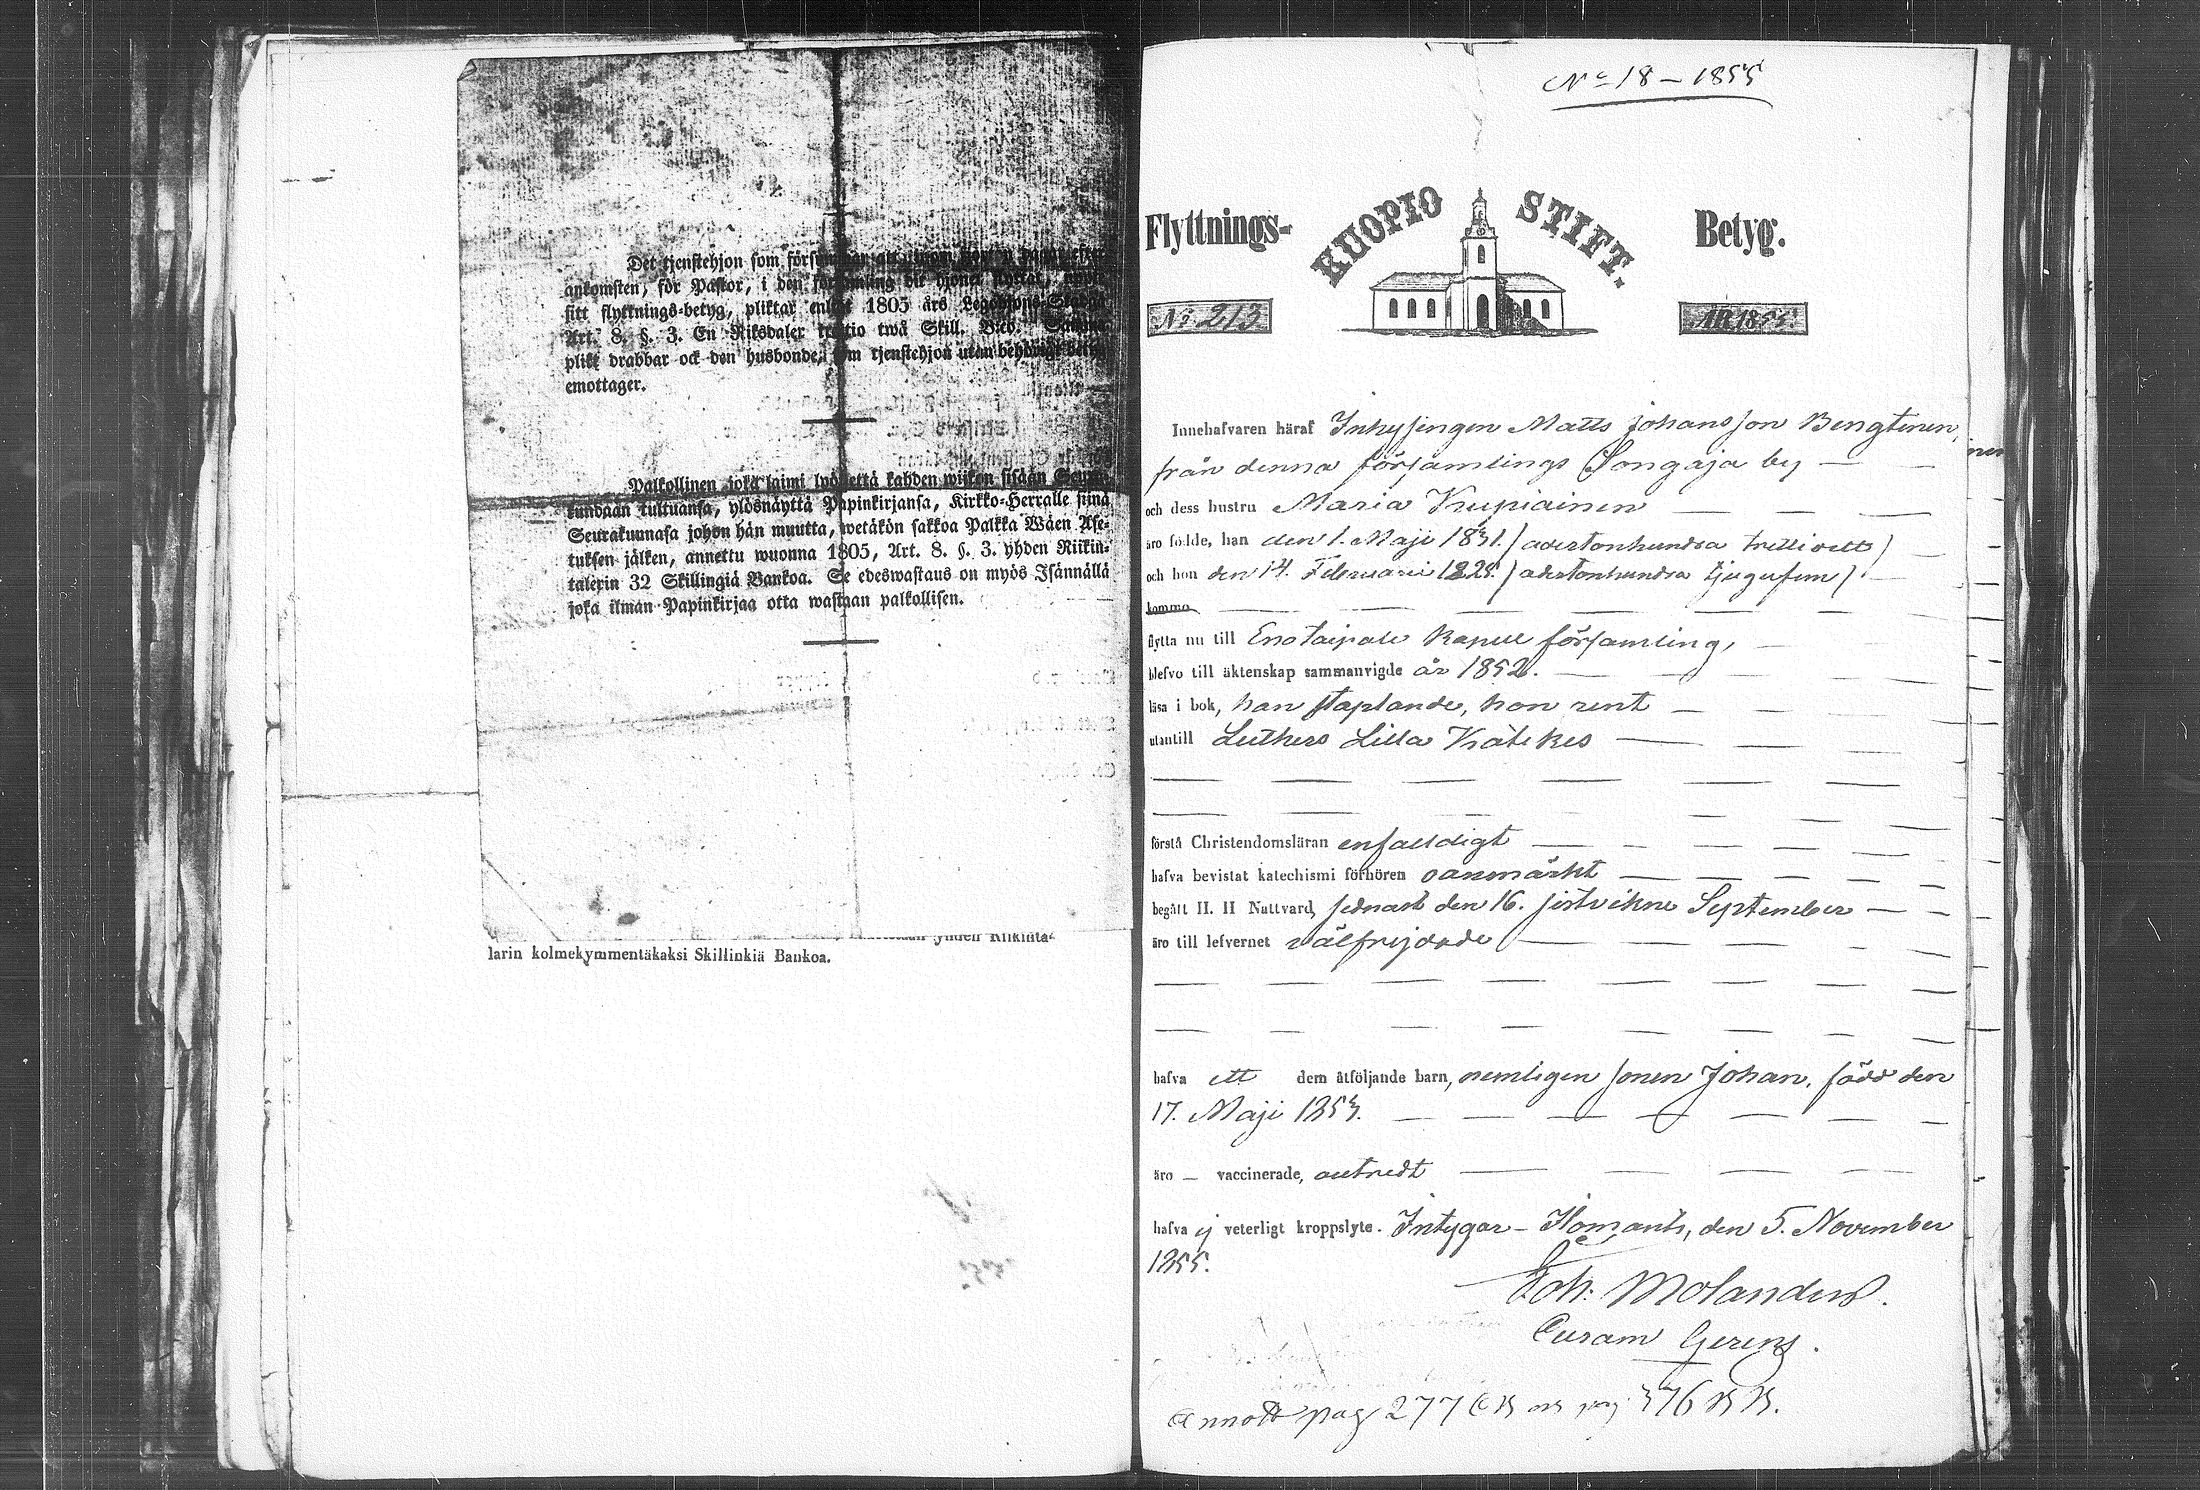 Det tjenstehjon som
ankomsten, för Pastor, i den
sitt flyttnings-betyg, pliktar enligt 1805 års Legohjons-Stadga
Art. 8. §. 3. En Riksdaler trettio twå Skill. Bco. Samma
plikt drabbar ock den husbonde, som tjenstehjon utan behörigt betyg
emottager.
Palkollinen joka laimi lyö, että kahden wiikon sisään Seura-
kundaan tultuansa, ylösnäyttä Papinkirjansa, Kirkko-Herralle siinä
Seurakunnasa johon hän muutta, wetäkön sakkoa Palkka Wäen Ase-
tuksen jälken, annettu wuonna 1805, Art. 8. §. 3. yhden Riikin-
talerin 32 Skillingiä Bankoa. Se edeswastaus on myös Isännällä
joka ilman Papinkirjaa otta wastaan palkollisen.
yhden Riikinta-
larin kolmekymmentäkaksi Skillinkiä Bankoa.
No 18 – 1855
Flyttnings- KUOPIO STIFT. Betyg.
No 213 ÅR 1855.
Innehafvaren häraf Inhysingen Matts Johansson Bengtinen,
från denna församlings Songaja by
och dess hustru Maria Kupiainen
äro födde, han den 1. Maji 1831. (adertonhundra trettioett)
och hon den 14. Februarii 1825. (adertonhundra tjugufem).
komma
flytta nu till Enotaipale Kapell församling,
blefvo till äktenskap sammanvigde år 1852.
läsa i bok, han staplande, hon rent
utantill Luthers Lilla Katekes
förstå Christendomsläran enfaldigt
hafva bevistat katechismi förhören oanmärkt
begått H. H Nattvard, sednast den 16. sistvikne September
äro till lefvernet välfrejdade
hafva ett dem åtföljande barn, nemligen sonen Johan, född den
17. Maji 1853.
äro – vaccinerade,
hafva ej veterligt kroppslyte. Intygar – Ilomants, den 5. November
1855.
Joh: Molander.
Curam Gerens.
Annot pag 277 CB och pag. 376 BB.